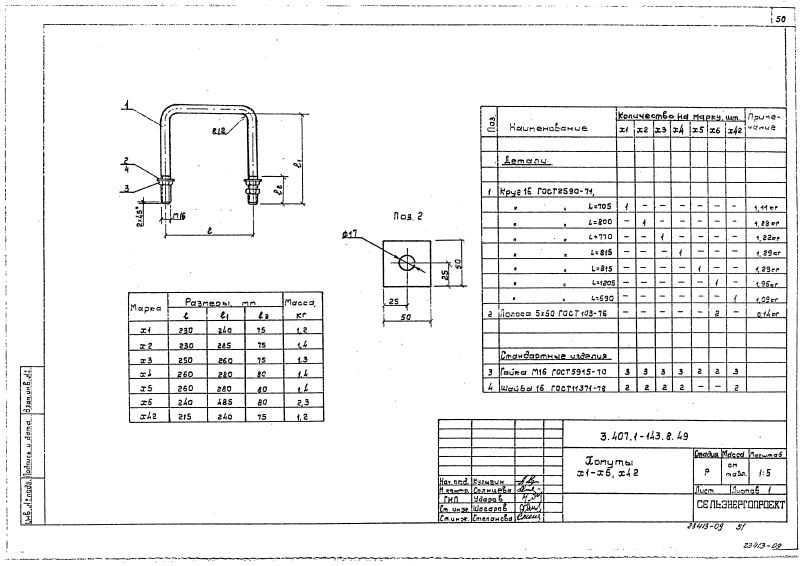 50
1
2
4
3
R12
l1
l2
2×45°
М16
l
Поз. 2
Ф17
25
50
25
50
Марка Размеры, мм Масса, кг
l l1 l2
х1 230 240 75 1,2
х2 230 285 75 1,4
х3 250 260 75 1,3
х4 260 280 80 1,4
х5 260 280 80 1,4
х6 240 485 80 2,3
х42 215 240 75 1,2
Поз. Наименование Количество на марку, шт. Приме-
чание
х1 х2 х3 х4 х5 х6 х42
Детали
1 Круг 16 ГОСТ2590-71,
" " L=705 1 – – – – – – 1,11кг
" " L=800 – 1 – – – – – 1,28кг
" " L=770 – – 1 – – – – 1,22кг
" " L=815 – – – 1 – – – 1,29кг
" " L=815 – – – – 1 – – 1,29кг
" " L=1205 – – – – – 1 – 1,95кг
" " L=690 – – – – – – 1 1,09кг
2 Полоса 5×50 ГОСТ 103-76 – – – – – 2 – 0,14кг
Стандартные изделия
3 Гайка М16 ГОСТ5915-70 3 3 3 3 2 2 3
4 Шайба 16 ГОСТ11371-78 2 2 2 2 – – 2
3.407.1-143.8.49
Хомуты
х1-х6, х42
Стадия Масса Масштаб
Р см табл. 1:5
Лист Листов 1
СЕЛЬЭНЕРГОПРОЕКТ
Нач.отд.
Н.контр. Солнцева
ГИП Ударов
Ст. инж. Шагаров
Ст. инж. Степанова
Инв.№подл. Подпись и дата Взам.инв.№
23413-09 51
23413-09